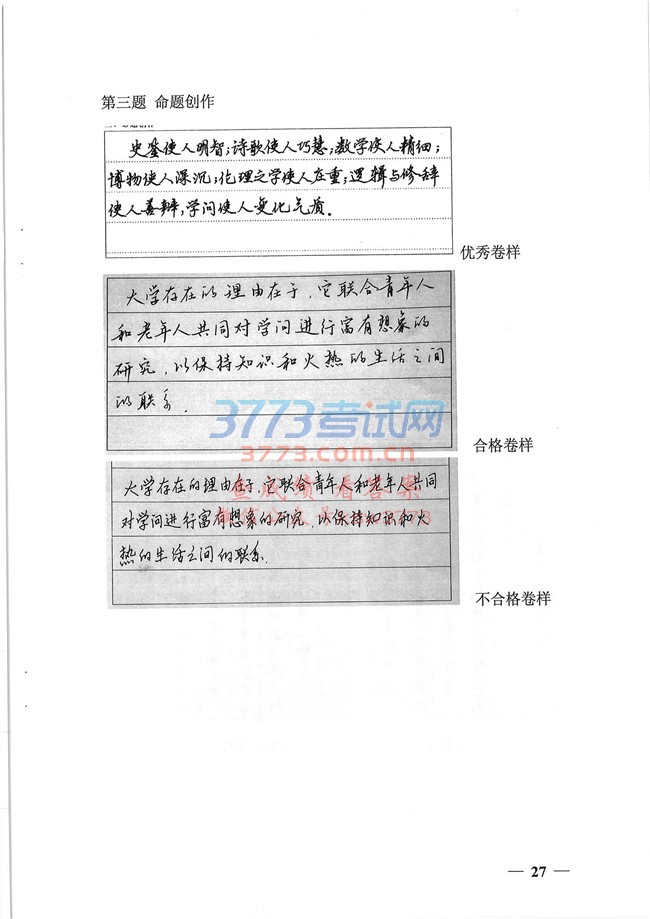 第三题 命题创作
史鉴使人明智；诗歌使人巧慧；数学使人精细；
博物使人深沉；伦理之学使人庄重；逻辑与修辞
使人善辩；学问使人变化气质．
优秀卷样
大学存在的理由在于，它联合青年人
和老年人共同对学问进行富有想象的
研究，以保持知识和火热的生活之间
的联系．
3773考试网
3773.com.cn
合格卷样
大学存在的理由在于，它联合青年人和老年人共同
对学问进行富有想象的研究，以保持知识和火
热的生活之间的联系．
不合格卷样
— 27 —